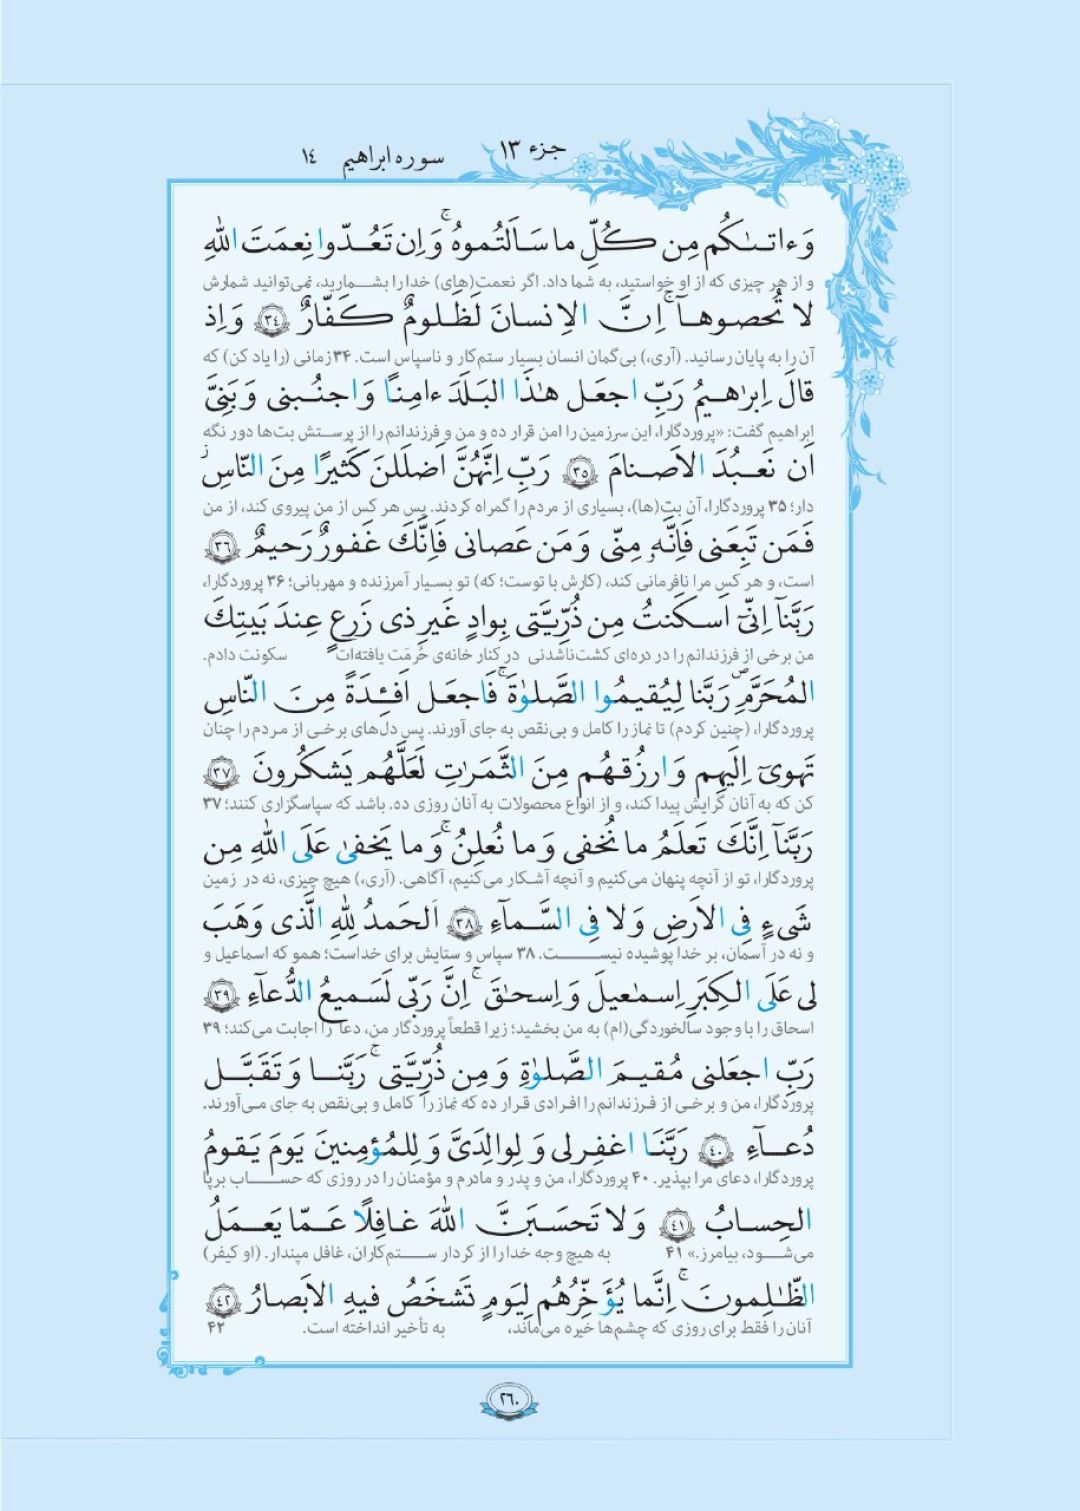 جزء ۱۳
سوره ابراهیم ۱۴
وَءاتىٰكُم مِن كُلِّ ما سَاَلتُموهُ ۚ وَ اِن تَعُدّوا نِعمَتَ اللّٰهِ
و از هر چیزی که از او خواستید، به شما داد. اگر نعمت(های) خدا را بشـمارید، نمی‌توانید شمارش
لا تُحصوهآ ۗ اِنَّ الاِنسانَ لَظَلومٌ كَفّارٌ ﴿٣٤﴾ وَ اِذ
آن را به پایان رسانید. (آری،) بی‌گمان انسان بسیار ستم‌کار و ناسپاس است. ۳۴ زمانی (را یاد کن) که
قالَ اِبرٰهیمُ رَبِّ اجعَل هٰذَا البَلَدَ ءامِنًا وَ اجنُبنی وَ بَنِیَّ
ابراهیم گفت: «پروردگارا، این سرزمین را امن قرار ده و من و فرزندانم را از پرستش بت‌ها دور نگه
اَن نَعبُدَ الاَصنامَ ﴿٣٥﴾ رَبِّ اِنَّهُنَّ اَضلَلنَ كَثیرًا مِنَ النّاسِ ۖ
دار؛ ۳۵ پروردگارا، آن بت(ها)، بسیاری از مردم را گمراه کردند. پس هر کس از من پیروی کند، از من
فَمَن تَبِعَنی فَاِنَّهٗ مِنّی وَ مَن عَصانی فَاِنَّكَ غَفورٌ رَحیمٌ ﴿٣٦﴾
است، و هر کس مرا نافرمانی کند، (کارش با توست؛ که) تو بسیار آمرزنده و مهربانی؛ ۳۶ پروردگارا،
رَبَّنآ اِنّیٓ اَسكَنتُ مِن ذُرِّیَّتی بِوادٍ غَیرِ ذی زَرعٍ عِندَ بَیتِكَ
من برخی از فرزندانم را در دره‌ای کشت‌ناشدنی در کنار خانه‌ی حُرمَت یافته‌ات سکونت دادم.
المُحَرَّمِ رَبَّنا لِیُقیمُوا الصَّلوٰةَ فَاجعَل اَفئِدَةً مِنَ النّاسِ
پروردگارا، (چنین کردم) تا نماز را کامل و بی‌نقص به جای آورند. پس دل‌های برخی از مردم را چنان
تَهویٓ اِلَیهِم وَ ارزُقهُم مِنَ الثَّمَرٰتِ لَعَلَّهُم یَشكُرونَ ﴿٣٧﴾
کن که به آنان گرایش پیدا کند، و از انواع محصولات به آنان روزی ده. باشد که سپاسگزاری کنند؛ ۳۷
رَبَّنآ اِنَّكَ تَعلَمُ ما نُخفی وَ ما نُعلِنُ ۗ وَ ما یَخفىٰ عَلَى اللّٰهِ مِن
پروردگارا، تو از آنچه پنهان می‌کنیم و آنچه آشکار می‌کنیم، آگاهی. (آری،) هیچ چیزی، نه در زمین
شَیءٍ فِی الاَرضِ وَ لا فِی السَّمآءِ ﴿٣٨﴾ اَلحَمدُ لِلّٰهِ الَّذی وَهَبَ
و نه در آسمان، بر خدا پوشیده نیســت. ۳۸ سپاس و ستایش برای خداست؛ همو که اسماعیل و
لی عَلَى الكِبَرِ اِسمٰعیلَ وَ اِسحٰقَ ۚ اِنَّ رَبّی لَسَمیعُ الدُّعآءِ ﴿٣٩﴾
اسحاق را با وجود سالخوردگی(ام) به من بخشید؛ زیرا قطعاً پروردگار من، دعا را اجابت می‌کند؛ ۳۹
رَبِّ اجعَلنی مُقیمَ الصَّلوٰةِ وَ مِن ذُرِّیَّتی ۚ رَبَّنا وَ تَقَبَّل
پروردگارا، من و برخی از فرزندانم را افرادی قرار ده که نماز را کامل و بی‌نقص به جای می‌آورند.
دُعآءِ ﴿٤٠﴾ رَبَّنَا اغفِرلی وَ لِوالِدَیَّ وَ لِلمُؤمِنینَ یَومَ یَقومُ
پروردگارا، دعای مرا بپذیر. ۴۰ پروردگارا، من و پدر و مادرم و مؤمنان را در روزی که حســاب برپا
الحِسابُ ﴿٤١﴾ وَ لا تَحسَبَنَّ اللّٰهَ غافِلًا عَمّا یَعمَلُ
می‌شــود، بیامرز.» ۴۱ به هیچ وجه خدا را از کردار ســتم‌کاران، غافل مپندار. (او کیفر)
الظّٰلِمونَ ۚ اِنَّما یُؤَخِّرُهُم لِیَومٍ تَشخَصُ فیهِ الاَبصارُ ﴿٤٢﴾
آنان را فقط برای روزی که چشم‌ها خیره می‌ماند، به تأخیر انداخته است. ۴۲
۲۶۰